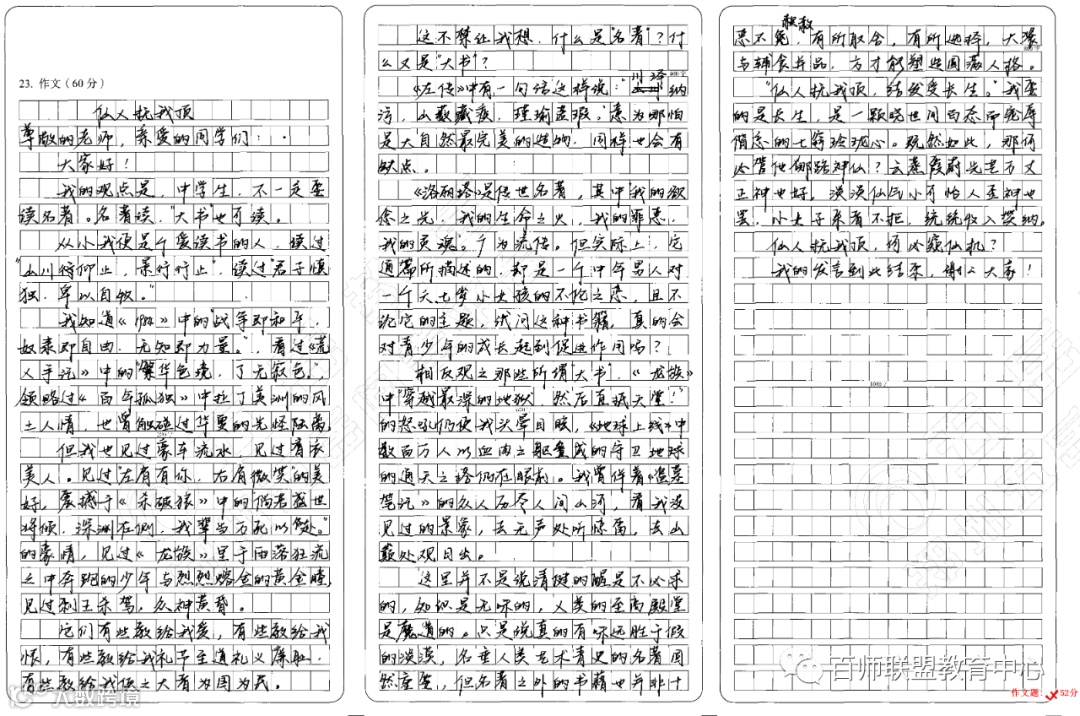 23. 作文(60分)
仙人抚我顶
尊敬的老师,亲爱的同学们:
大家好!
我的观点是,中学生,不一定要
读名著。名著读,"大书"也可读。
从小我便是个爱读书的人,读过
行仰止,景行行止",读过"君子慎
独,卑以自牧。"
我知道《1984》中的"战争即和平,
奴隶即自由,无知即力量。",看过《荒
人手记》中的"繁华色境,了无寂色",
领略过《百年孤独》中拉丁美洲的风
土人情,也曾触碰过华要的光怪陆离
但我也见过豪车流水,见过看衣
美人。见过"左有有你,右有微笑"的美
好,震撼于《杀破狼》中的"倘若盛世
将倾,深渊在侧,我辈当万死以赴。"
的豪情,见过《龙族》里于雨落狂流
之中奔跑的少年与烈烈熔金的黄金瞳,
见过列王杀驾,众神黄昏。
它们有些教给我爱,有些教给我
恨,有些教给我礼予至道礼义廉耻,
有些教给我侠之大者为国为民。
这不禁让我想,什么是"名著"?什
么又是"大书"?
《左传》中有一句话这样说:"川泽纳
污,山薮藏疾,瑾瑜匿瑕。"意为哪怕
是大自然最完美的造物,同样也会有
缺点。
《洛丽塔》是传世名著,其中"我的欲
念之光,我的生命之火,我的罪恶,
我的灵魂"。广为流传。但实际上,它
通篇所描述的,却是一个中年男人对
一个十七岁小女孩的不伦之恋,且不
论它的主题,试问这种书籍,真的会
对青少年的成长起到促进作用吗?
相反观之那些所谓"大书",《龙族》
中"穿越最深的地狱,然后直抵天堂!"
的怒吼仍使我头晕目眩,《地球上线》中
数百万人以血肉之躯叠成的守卫地球
的通天之塔仍在眼前。我曾伴着《盗墓
笔记》的众人历尽人间山河,看我没
见过的景象,去无声处听惊雷,去山
巅处观日出。
这里并不是说清健的醒是不必求
的,知识是无味的,人类的至高殿堂
是魔道的。只是说真的有味远胜于假
的淡漠,名垂人类艺术青史的名著固
然应受,但名著之外的书籍也并非十
恶不赦,有所取舍,有所选择,大餐
与辅食并品,方才能塑造圆满人格。
"仙人抚我顶,结发受长生。"我要
的是长生,是一颗晓世间百态而宽厚
的七窍玲珑心。既然如此,那何
必管他哪路神仙?云蒸霞蔚光芒万丈
正神也好,淡淡仙气小可怡人歪神也
罢,小女子来者不拒,统统收入囊纳。
仙人抚我顶,何必窥仙机?
我的发言到此结束,谢谢大家!
800字
1000字
百师联盟教育中心
大数跨境
作文题: 52分